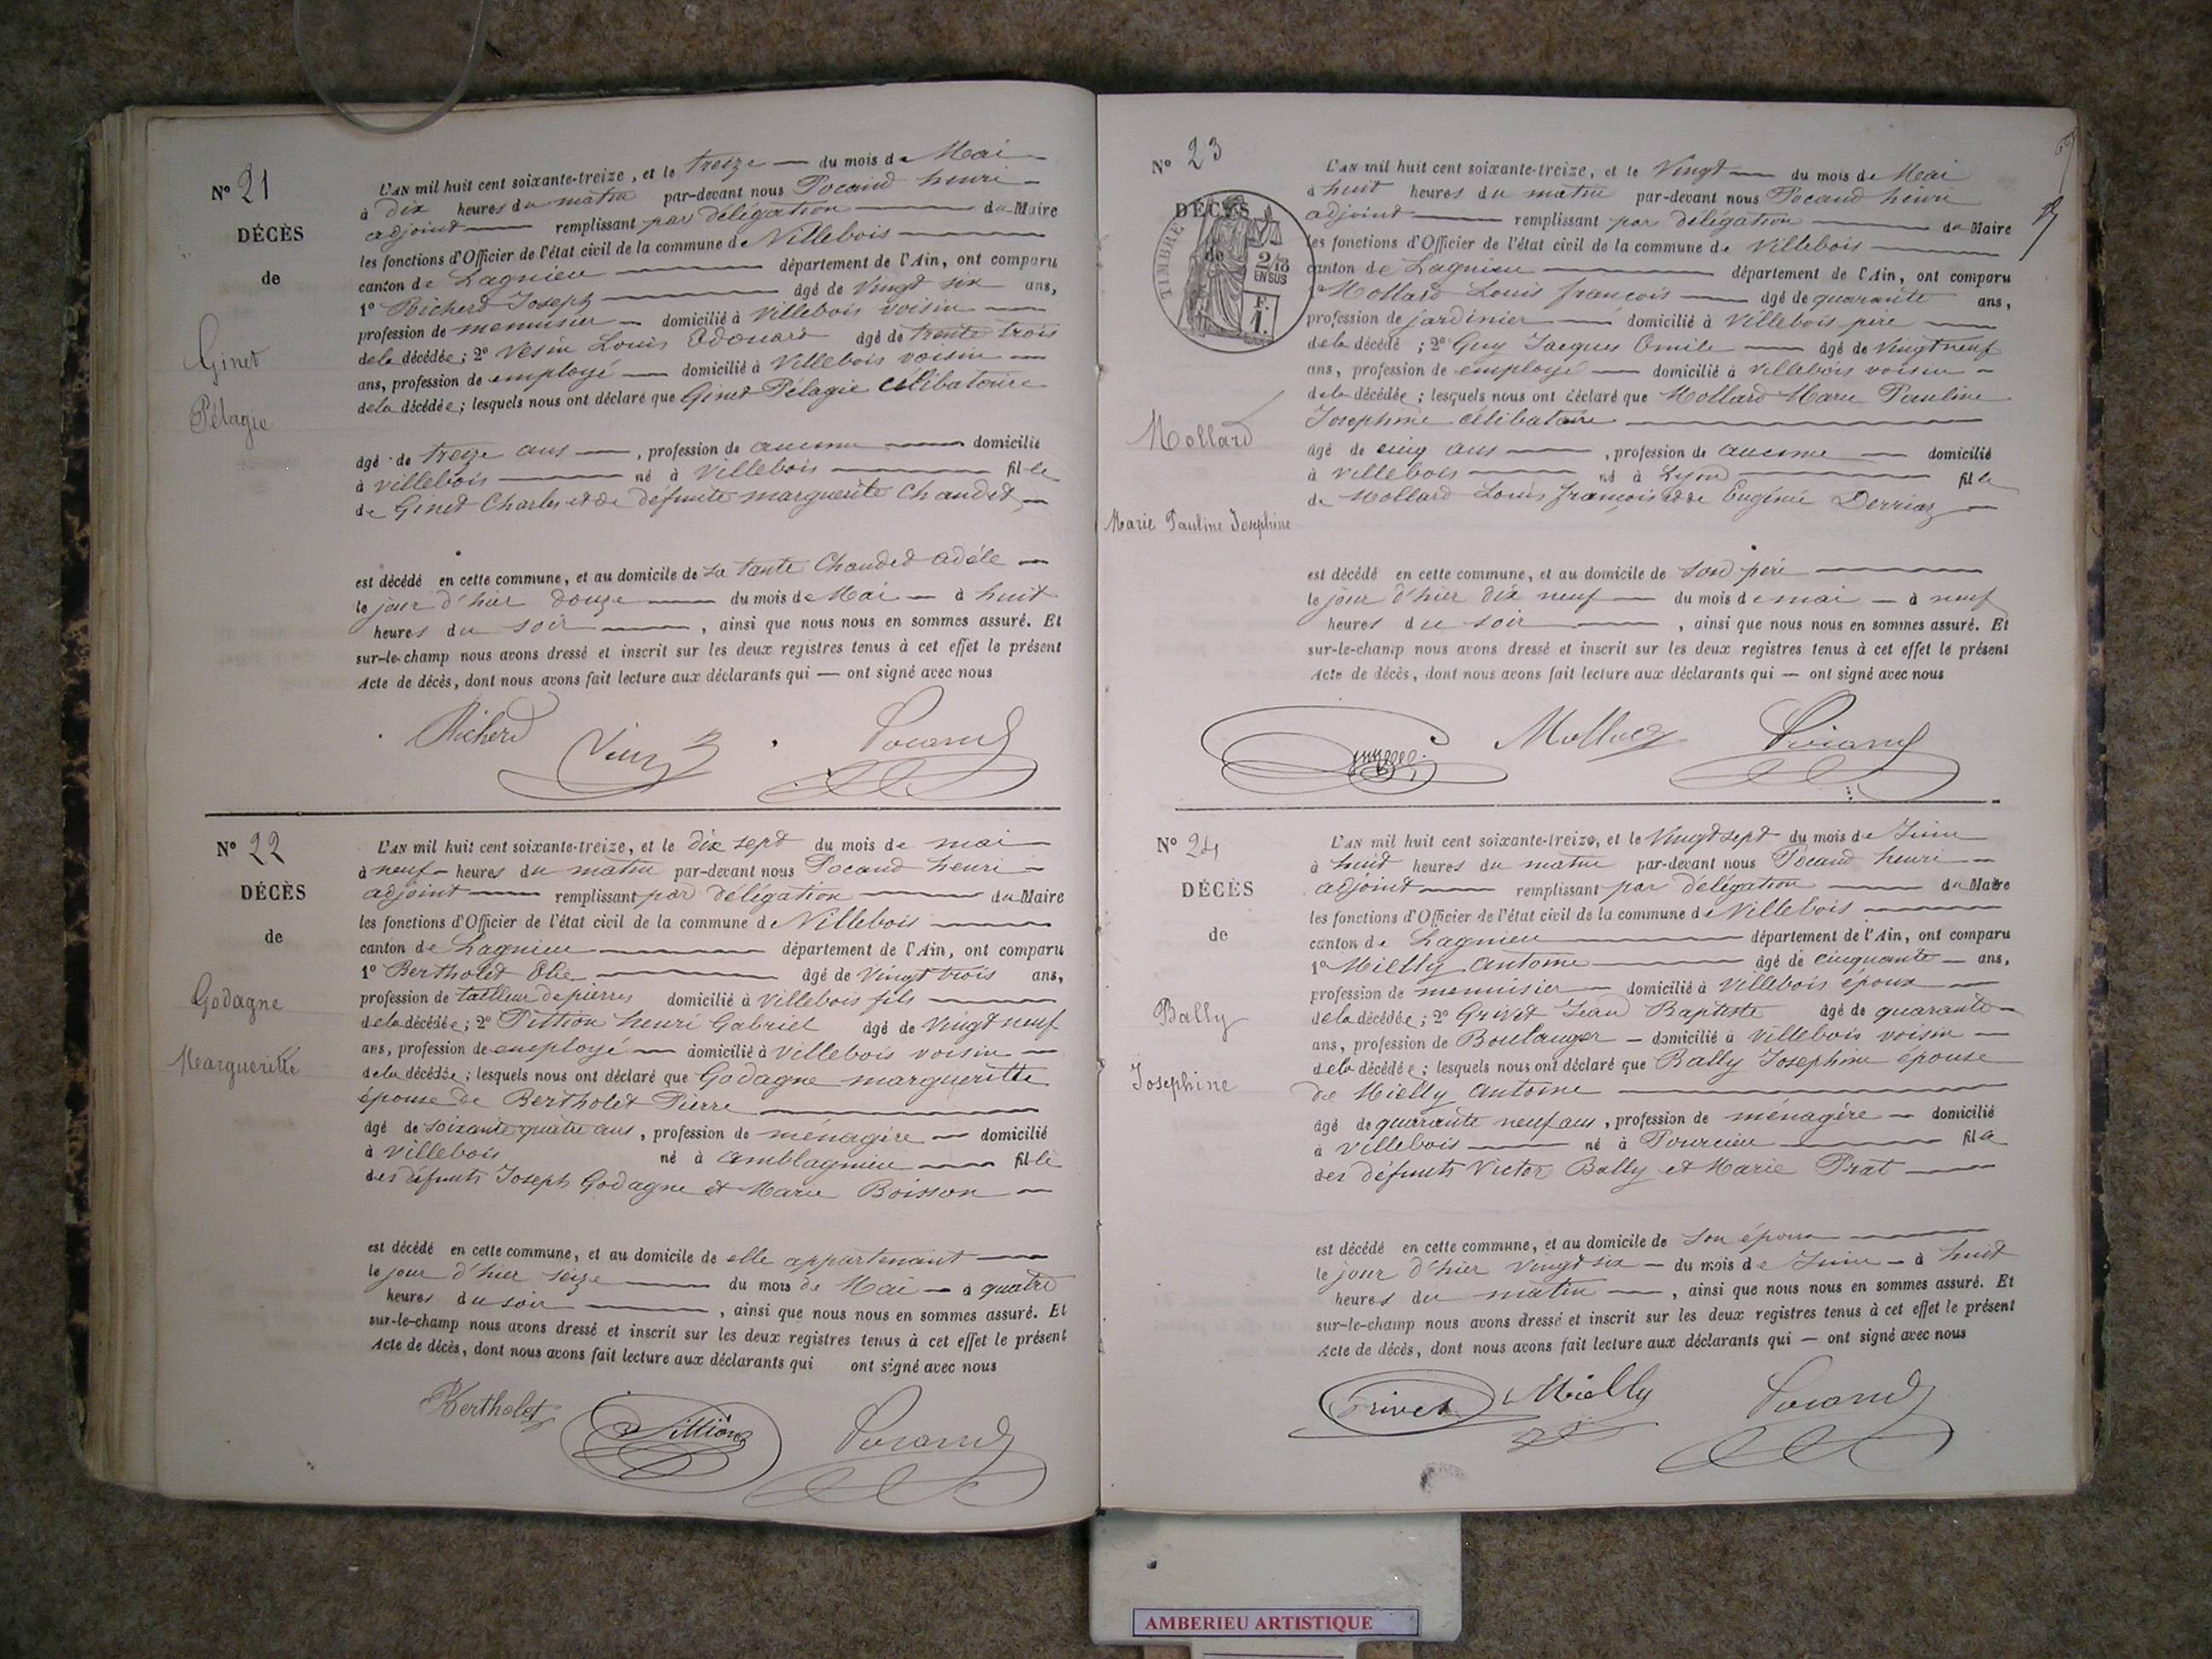 N° 21
DÉCÈS
de
Ginet
Pélagie
L'AN mil huit cent soixante-treize, et le treize du mois de Mai
à dix heures du matin par-devant nous Pocand henri
adjoint remplissant par délégation du Maire
les fonctions d'Officier de l'état civil de la commune de Villebois
canton de Lagnieu département de l'Ain, ont comparu
1° Richerd Joseph âgé de vingt six ans,
profession de menuisier domicilié à Villebois voisin
de la décédée; 2° Vesin Louis Edouard âgé de trente trois
ans, profession de employé domicilié à Villebois voisin
de la décédée; lesquels nous ont déclaré que Ginet Pélagie célibataire
âgé de treize ans, profession de aucune domicilié
à Villebois né à Villebois fille
de Ginet Charles et de défunte marguerite Chaudet
est décédé en cette commune, et au domicile de sa tante Chaudet adéle
le jour d'hier douze du mois de Mai à huit
heures du soir, ainsi que nous nous en sommes assuré. Et
sur-le-champ nous avons dressé et inscrit sur les deux registres tenus à cet effet le présent
Acte de décès, dont nous avons fait lecture aux déclarants qui — ont signé avec nous
Richerd Pocand
N° 22
DÉCÈS
de
Godagne
Margueritte
L'AN mil huit cent soixante-treize, et le dix sept du mois de mai
à neuf heures du matin par-devant nous Pocand henri
adjoint remplissant par délégation du Maire
les fonctions d'Officier de l'état civil de la commune de Villebois
canton de Lagnieu département de l'Ain, ont comparu
1° Bertholet Elie âgé de vingt trois ans,
profession de tailleur de pierres domicilié à Villebois fils
de la décédée; 2° Pittion henri Gabriel âgé de vingt neuf
ans, profession de employé domicilié à Villebois voisin
de la décédée; lesquels nous ont déclaré que Godagne margueritte
épouse de Bertholet Pierre
âgé de soixante quatre ans, profession de ménagère domicilié
à Villebois né à amblagnieu fille
des défunts Joseph Godagne et Marie Boisson
est décédé en cette commune, et au domicile de elle appartenant
le jour d'hier seize du mois de Mai à quatre
heures du soir, ainsi que nous nous en sommes assuré. Et
sur-le-champ nous avons dressé et inscrit sur les deux registres tenus à cet effet le présent
Acte de décès, dont nous avons fait lecture aux déclarants qui ont signé avec nous
Bertholet Pittion Pocand
N° 23
DÉCÈS
de
TIMBRE
2/10
EN SUS
F.
1.
Mollard
Marie Pauline Josephine
L'AN mil huit cent soixante-treize, et le Vingt du mois de Mai
à huit heures du matin par-devant nous Pocand henri
adjoint remplissant par délégation du Maire
les fonctions d'Officier de l'état civil de la commune de Villebois
canton de Lagnieu département de l'Ain, ont comparu
1° Mollard Louis françois âgé de quarante ans,
profession de jardinier domicilié à Villebois père
de la décédé; 2° Guy Jacques Emile âgé de vingt neuf
ans, profession de employé domicilié à Villebois voisin
de la décédée; lesquels nous ont déclaré que Mollard Marie Pauline
Josephine célibataire
âgé de cinq ans, profession de aucune domicilié
à Villebois né à Lyon fille
de Mollard Louis françois et de Eugénie Derriaz
est décédé en cette commune, et au domicile de son père
le jour d'hier dix neuf du mois de mai à neuf
heures du soir, ainsi que nous nous en sommes assuré. Et
sur-le-champ nous avons dressé et inscrit sur les deux registres tenus à cet effet le présent
Acte de décès, dont nous avons fait lecture aux déclarants qui — ont signé avec nous
Pocand
N° 24
DÉCÈS
de
Bally
Josephine
L'AN mil huit cent soixante-treize, et le Vingt sept du mois de Juin
à huit heures du matin par-devant nous Pocand henri
adjoint remplissant par délégation du Maire
les fonctions d'Officier de l'état civil de la commune de Villebois
canton de Lagnieu département de l'Ain, ont comparu
1° Mielly antoine âgé de cinquante ans,
profession de menuisier domicilié à Villebois époux
de la décédée; 2° Grivet Jean Baptiste âgé de quarante
ans, profession de Boulanger domicilié à Villebois voisin
de la décédée; lesquels nous ont déclaré que Bally Josephine épouse
de Mielly antoine
âgé de quarante neuf ans, profession de ménagère domicilié
à Villebois né à Pourcieu fille
des défunts Victor Bally et Marie Prat
est décédé en cette commune, et au domicile de son époux
le jour d'hier vingt six du mois de Juin à huit
heures du matin, ainsi que nous nous en sommes assuré. Et
sur-le-champ nous avons dressé et inscrit sur les deux registres tenus à cet effet le présent
Acte de décès, dont nous avons fait lecture aux déclarants qui — ont signé avec nous
Grivet Mielly Pocand
AMBERIEU ARTISTIQUE